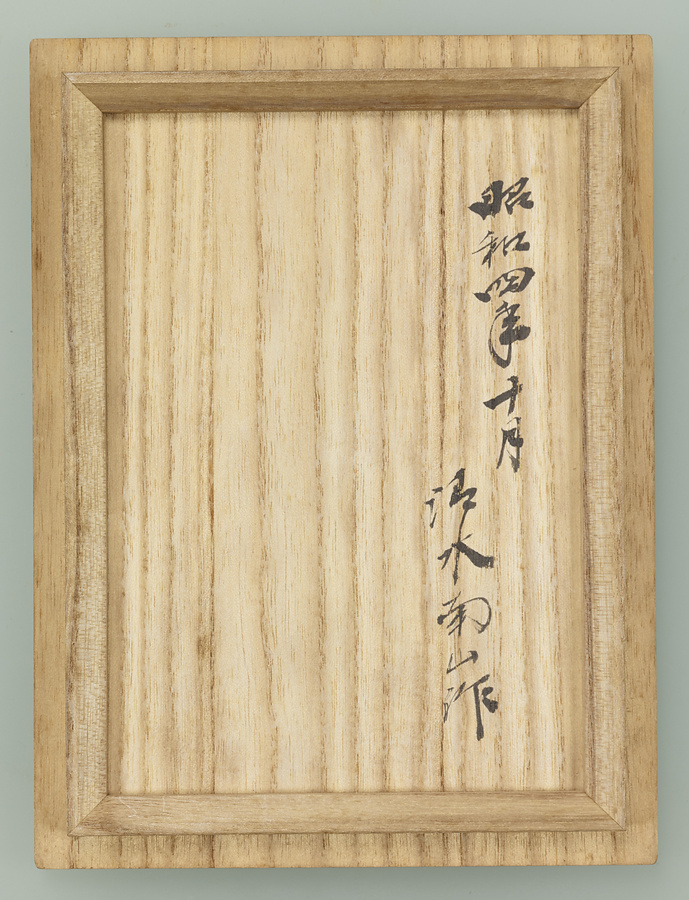 昭和四年十月
清水南山作